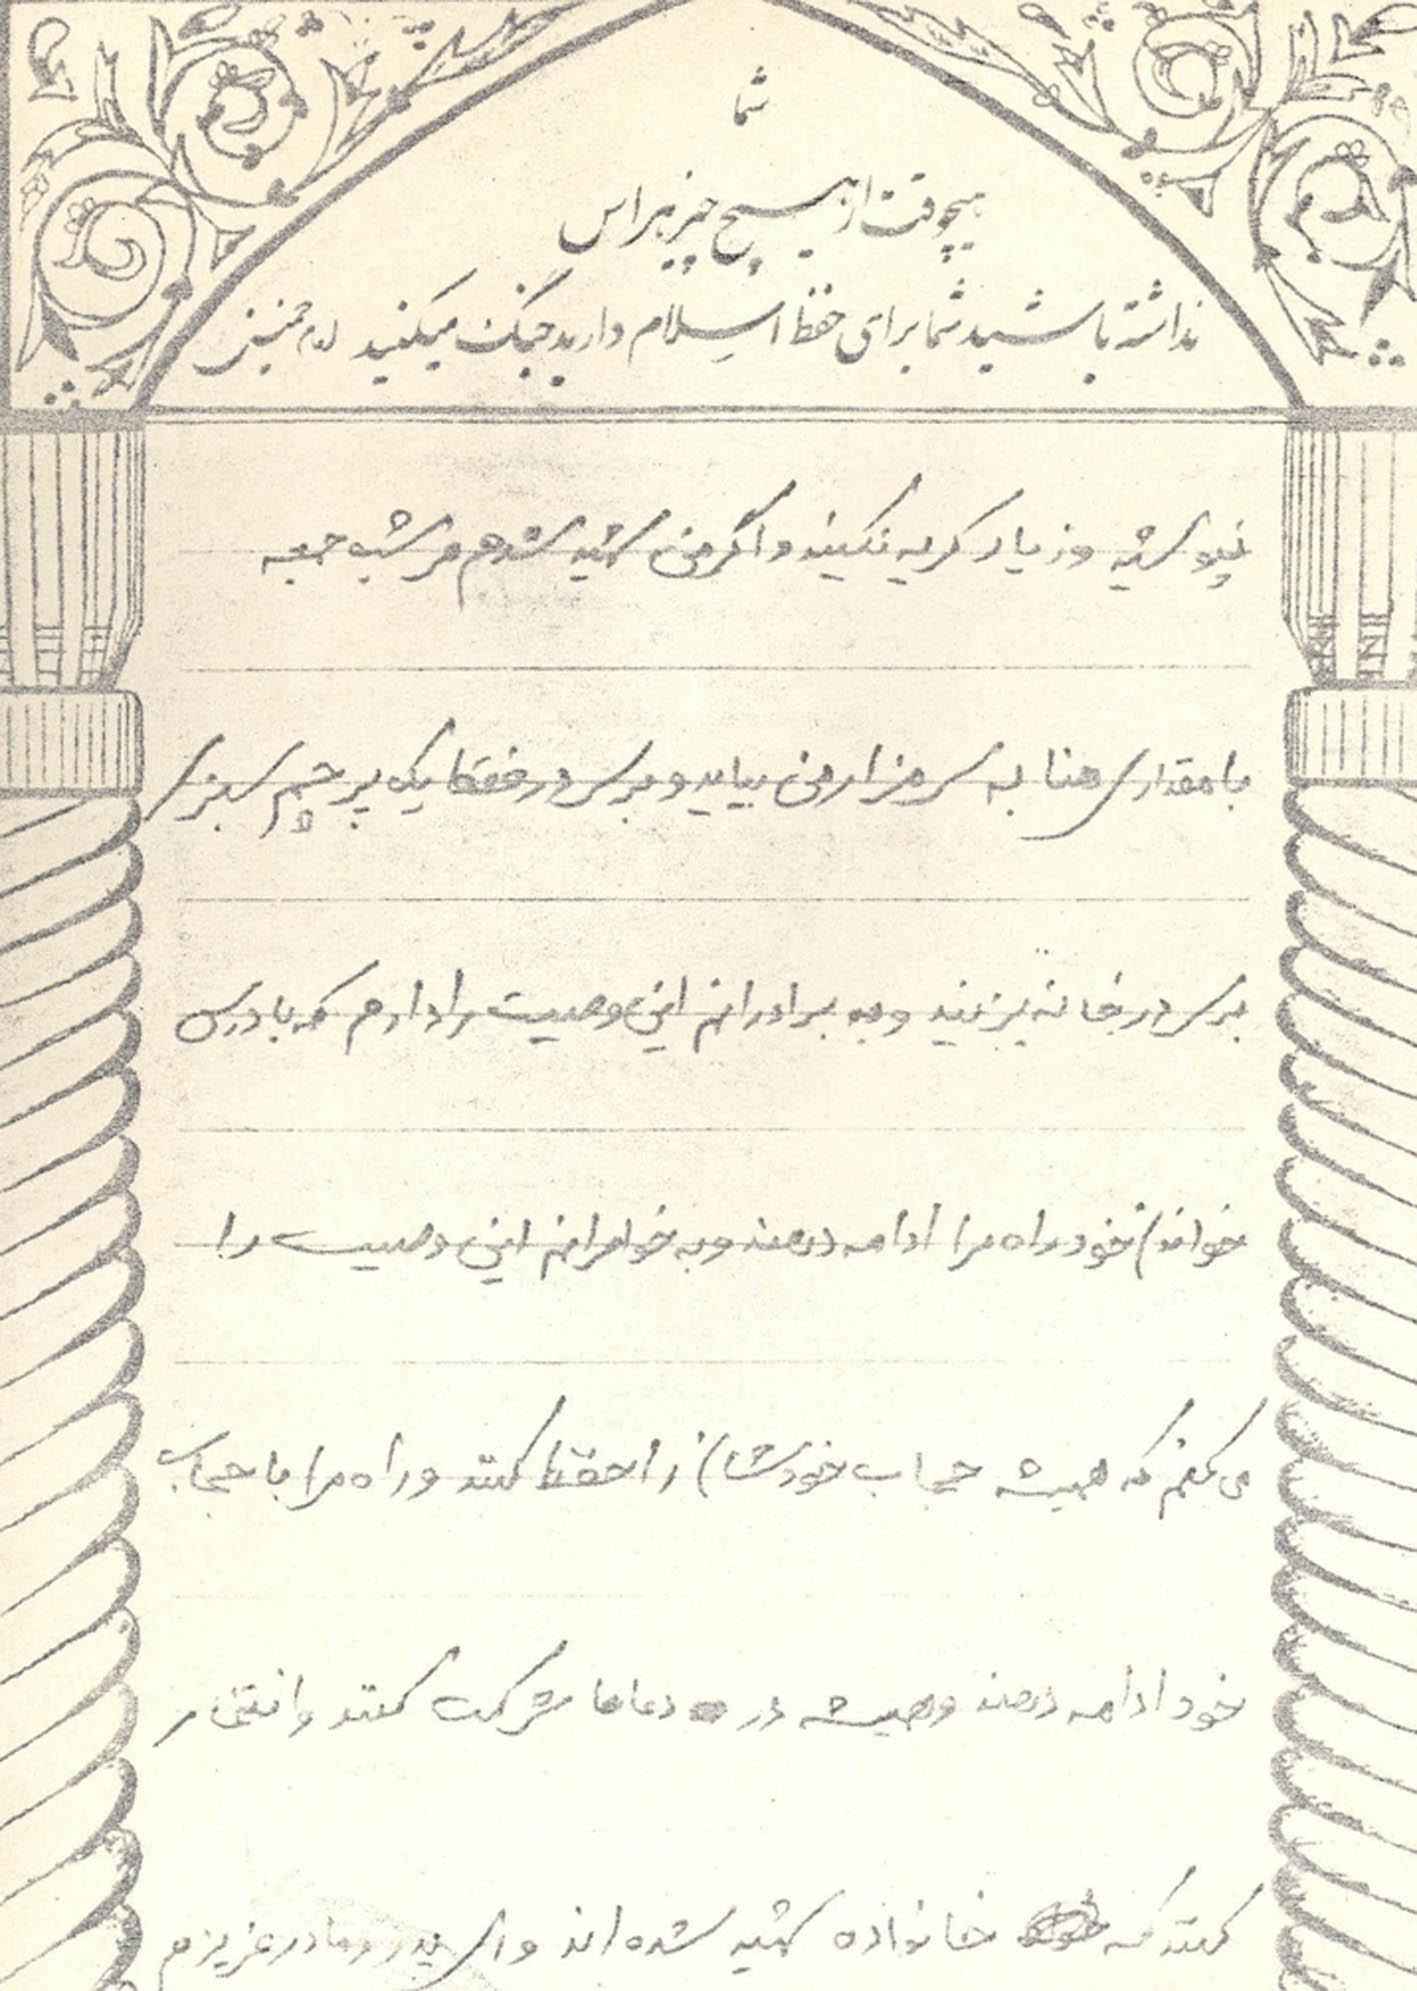 شما
هیچوقت از هیچ چیز هراس
نداشته باشید شما برای حفظ اسلام دارید جنگ میکنید امام خمینی
نپوشید و زیاد گریه نکنید و اگر من شهید شدم هر شب جمعه
با مقداری حنا به سر مزار من بیاید و بر سر در فقط یک پرچم سبز
بر سر در خانه بزنید و به برادرانم این وصیت را دارم که با درس
خواندن خود راه مرا ادامه دهند و به خواهرانم این وصیت را
می کنم که همیشه حجاب خودشان را حفظ کنند و راه مرا با حجاب
خود ادامه دهند و همیشه در دعاها شرکت کنند و افتخار
کنند که خانواده شهید شده اند و ای پدر و مادر عزیزم